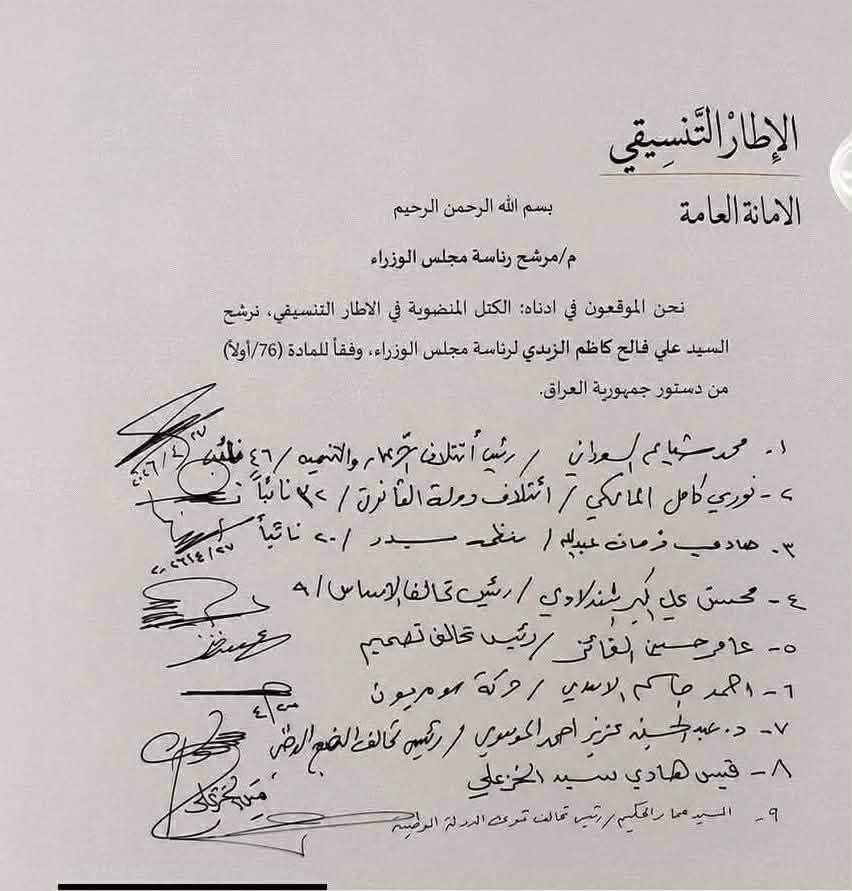 الإطارْ التَّنسِيقي
الامانة العامة
بسم الله الرحمن الرحيم
م/مرشح رئاسة مجلس الوزراء
نحن الموقعون في ادناه: الكتل المنضوية في الاطار التنسيقي، نرشح
السيد علي فالح كاظم الزيدي لرئاسة مجلس الوزراء، وفقاً للمادة (76/أولاً)
من دستور جمهورية العراق.
١- محمد شياع السوداني / رئيس أئتلاف الإعمار والتنميه / ٤٦ نائب
٢٠٢٦/٤/٢٧
٢- نوري كامل المالكي / أئتلاف دولة القانون / ٣٢ نائباً
٣- هادي فرحان عبدالله / منظمة بدر / ٢٠ نائباً
٢٠٢٦/٤/٢٧
٤- محسن علي اكبر المندلاوي / رئيس تحالف الاساس / ٩
٥- عامر حسين الفائز / رئيس تحالف تصميم
٦- احمد جاسم الاسدي / حركة سومريون
٧- د. عبدالحسين عزيز احمد الموسوي / رئيس تحالف النهج الوطني
٨- قيس هادي سيد الخزعلي
٩- السيد عمار الحكيم / رئيس تحالف قوى الدولة الوطنية